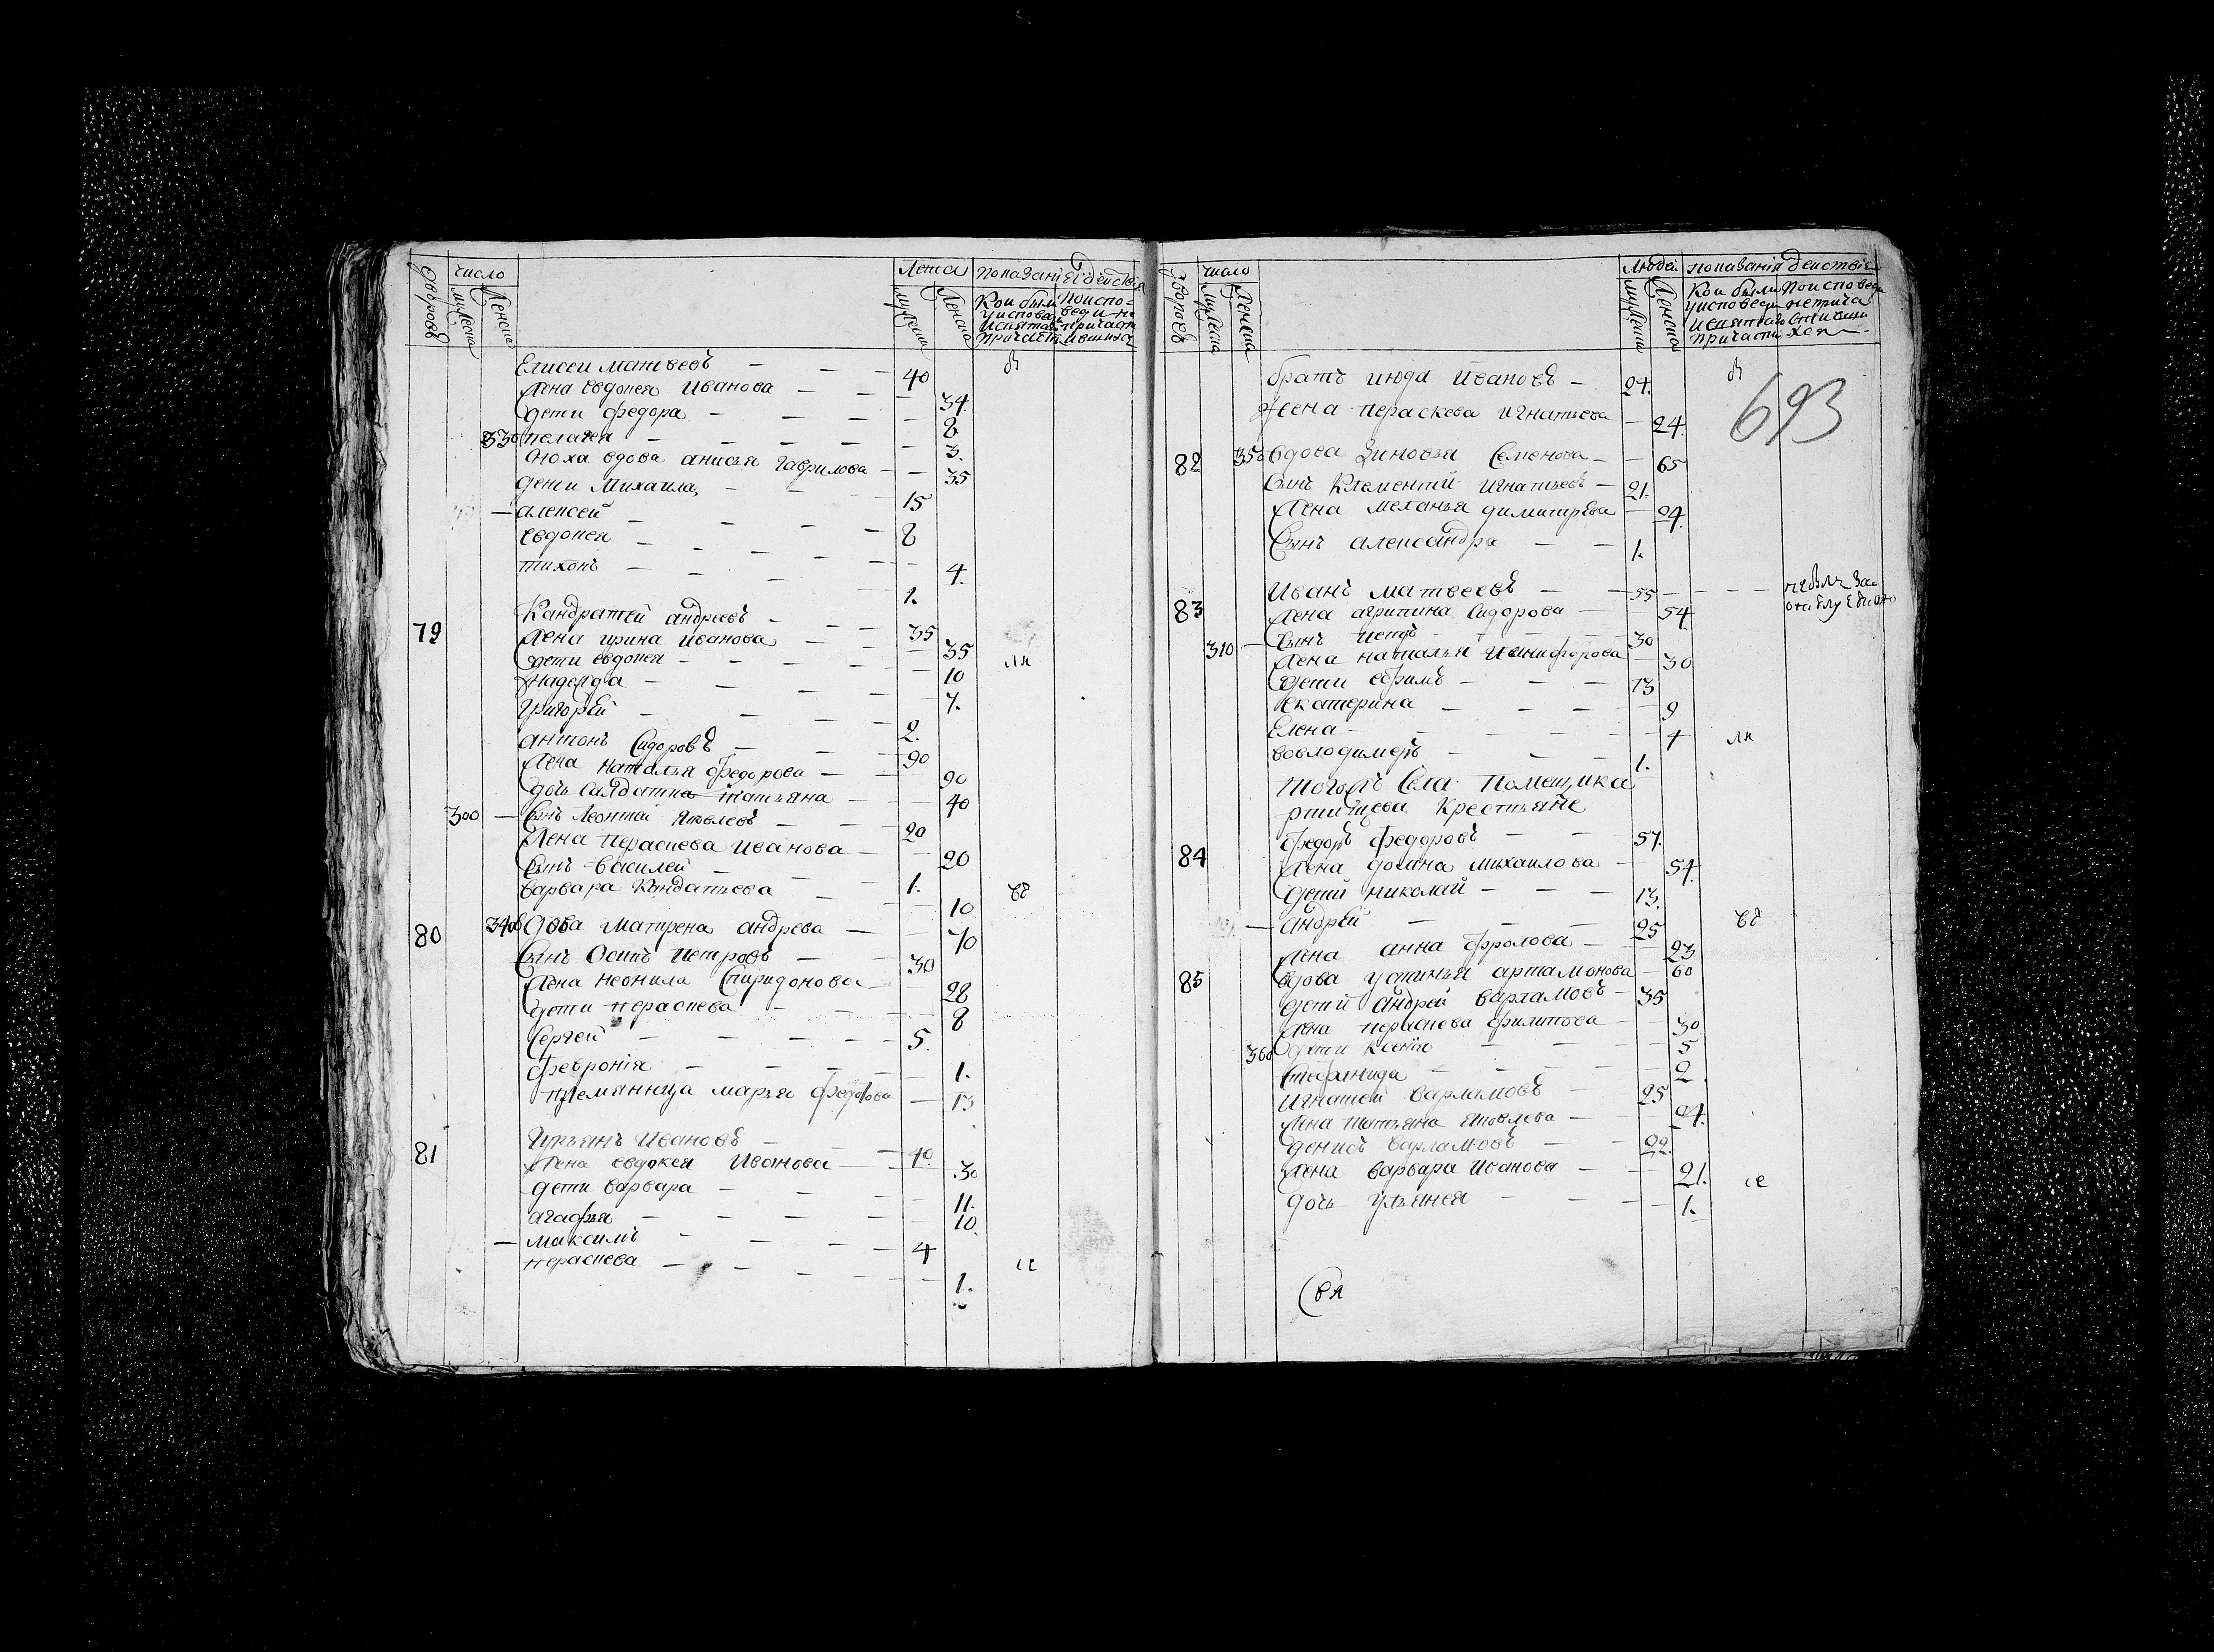 число
Лета
показанiе действа
дворовъ
мужеска
женска
мужеска
женска
Кои были
у исповеди
и святаго
причастия
по испо-
веди но
Елисеи матвеевъ — — 40 вı
жена евдокея иванова — — 34.
дети федора — — — 8
330 пелагея — — — — 3.
сноха вдова анисья гаврилова — — 35
дети михаила — — — 15
— алексей — — — — 8
евдокея — — — — — 4.
тихонъ — — — — 1.
79 Кандратей андреевъ — — 35
жена ирина иванова — — 35
дети евдокея — — — — 10 ли
надежда — — — — 7.
григорей — — — — 2.
антонъ Сидоровъ — — — 90
жена наталья федорова — — 90
дочь салдатка татьяна — — 40
300 — Сынъ леонтей яковлевъ — — 20
жена параскева иванова — — 20
Сынъ василей — — — 1.
варвара Кандатьева — — — 10
80 340 вдова матрена андрева — — 70
Сынъ Осипъ петровъ — — 30
жена неонила Спиридонова — — 28
дети пераскева — — — 8
Сергей — — — — — 5.
феврония — — — — — 1.
племянница марья федорова — 13
81 лукьянъ ивановъ — — 40
жена евдокея иванова — — 30
дети варвара — — — — 11.
агафья — — — — 10.
— максимъ — — — — 4
пераскева — — — — — 1.
число
людей
показанiя действiе
дворовъ
мужеска
женска
мужеска
женска
Кои были
у исповеди
и святаго
причастия
По исповеди
не прича
693
братъ июда ивановъ — 24. вı
жена пераскева игнатьева — 24.
82 350 вдова Зиновья Семенова — — 65
Сынъ Клементий игнатьевъ — 21.
жена меланья димитрева — 24.
Сынъ александра — — 1.
83 Иванъ матвеевъ — — 55 — — —
жена агрипина Сидорова — 54.
310 — Сынъ — — — 30
жена наталья никифорова — 30
дети ефимъ — — — 13
екатерина — — — — 9
Елена — — — — — 4 ли
воvлодимеръ — — — 1.
тогожъ Села помещика
ртищева Крестьяне
84 федоръ федоровъ — — 57.
жена домна михаилова — 54.
дети николай — — — 13.
— андрей — — — 25
жена анна фролова — — 23
85 вдова устинья артамонова — 60
дети андрей варламовъ — 35
жена параскева филипова — — 30
360 дети Ксения — — — 5
Степанида — — — — 2.
игнатей варламовъ — 25
жена татьяна яковлева — — 24.
денисъ варламовъ — — 22.
жена варвара иванова — — 21.
дочь ульянея — — — 1.